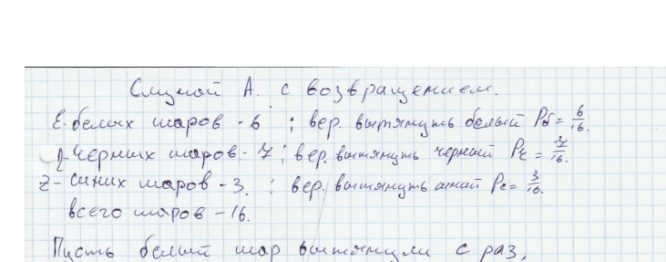 Случай А. с возвращением.
ξ-белых шаров - 6 ; вер. вытянуть белый Pб = 6/16.
η-черных шаров - 7 ; вер. вытянуть черный Pч = 7/16.
z- синих шаров - 3. ; вер. вытянуть синий Pс = 3/16.
всего шаров - 16.
Пусть белый шар вытянули с раз,